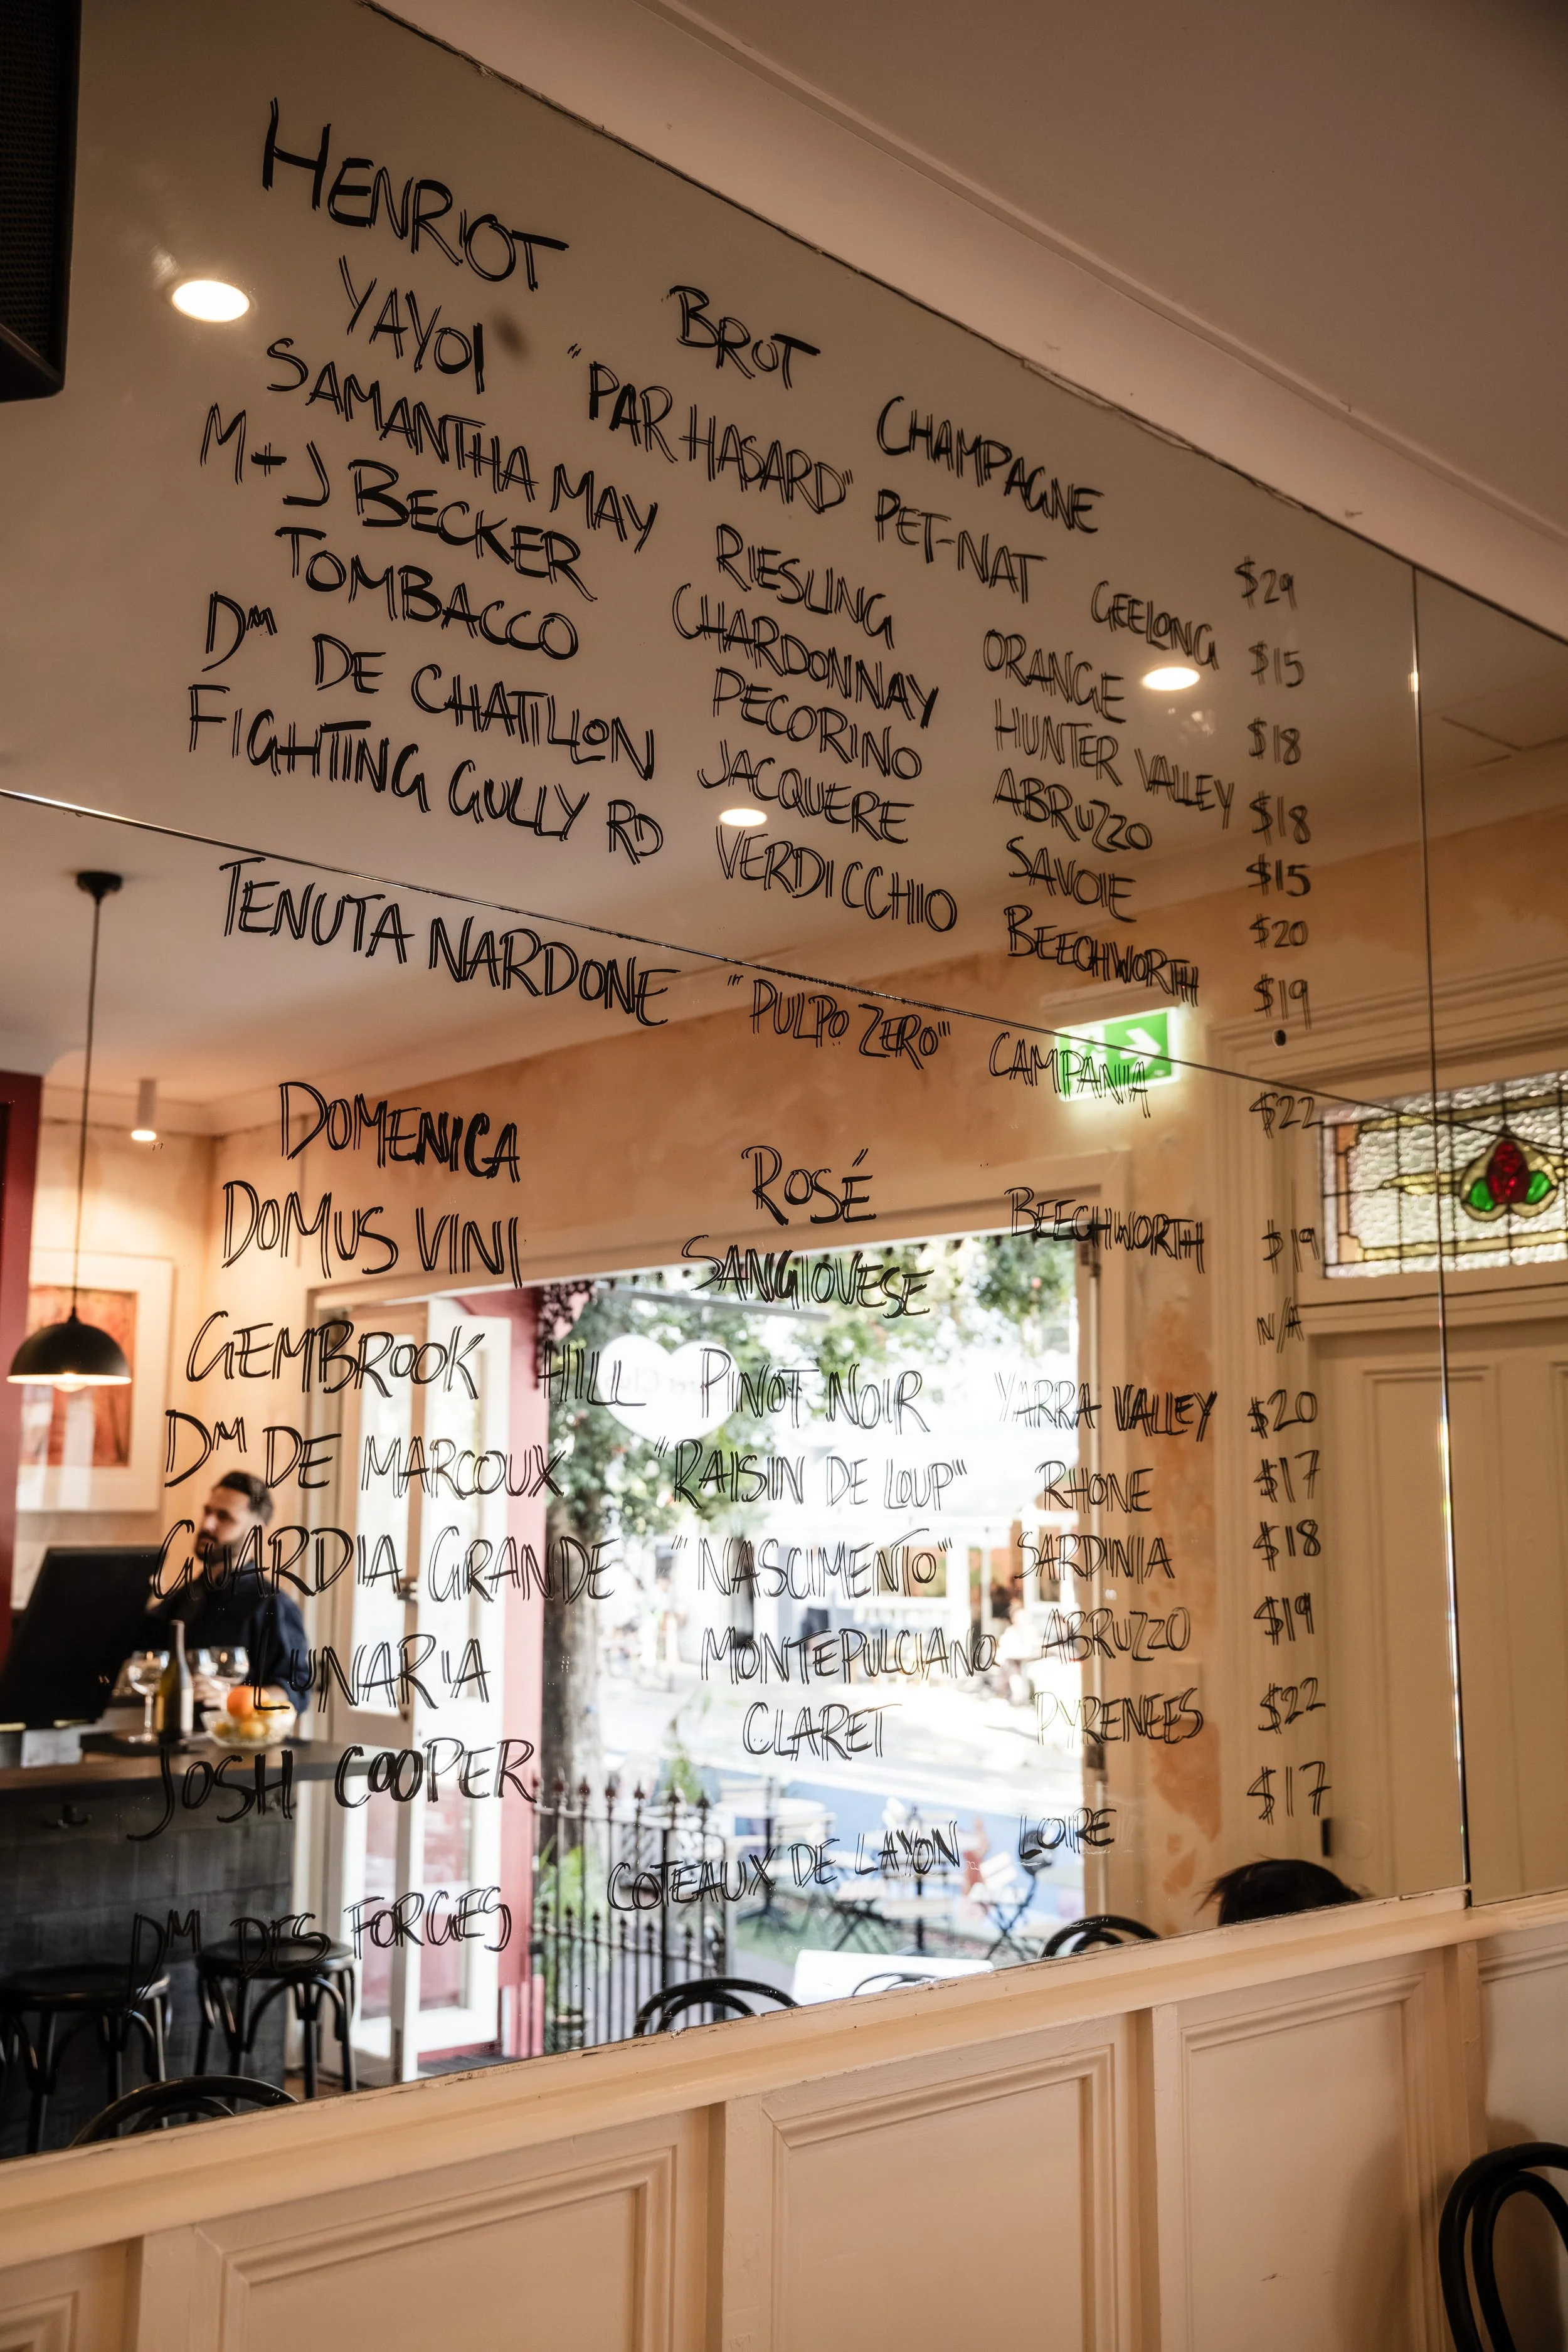 HENRIOT BRUT CHAMPAGNE $29
YAYOI "PAR HASARD" PET-NAT GEELONG $15
SAMANTHA MAY RIESLING ORANGE $18
M+J BECKER CHARDONNAY HUNTER VALLEY $18
TOMBACCO PECORINO ABRUZZO $15
DM DE CHATILLON JACQUERE SAVOIE $20
FIGHTING GULLY RD VERDICCHIO BEECHWORTH $19
TENUTA NARDONE "PULPO ZERO" CAMPANIA $22
DOMENICA ROSÉ BEECHWORTH $19
DOMUS VINI SANGIOVESE N/A
GEMBROOK HILL PINOT NOIR YARRA VALLEY $20
DM DE MARCOUX "RAISIN DE LOUP" RHONE $17
GUARDIA GRANDE "NASCIMENTO" SARDINIA $18
LUNARIA MONTEPULCIANO ABRUZZO $19
JOSH COOPER CLARET PYRENEES $22
DM DES FORGES COTEAUX DE LAYON LOIRE $17